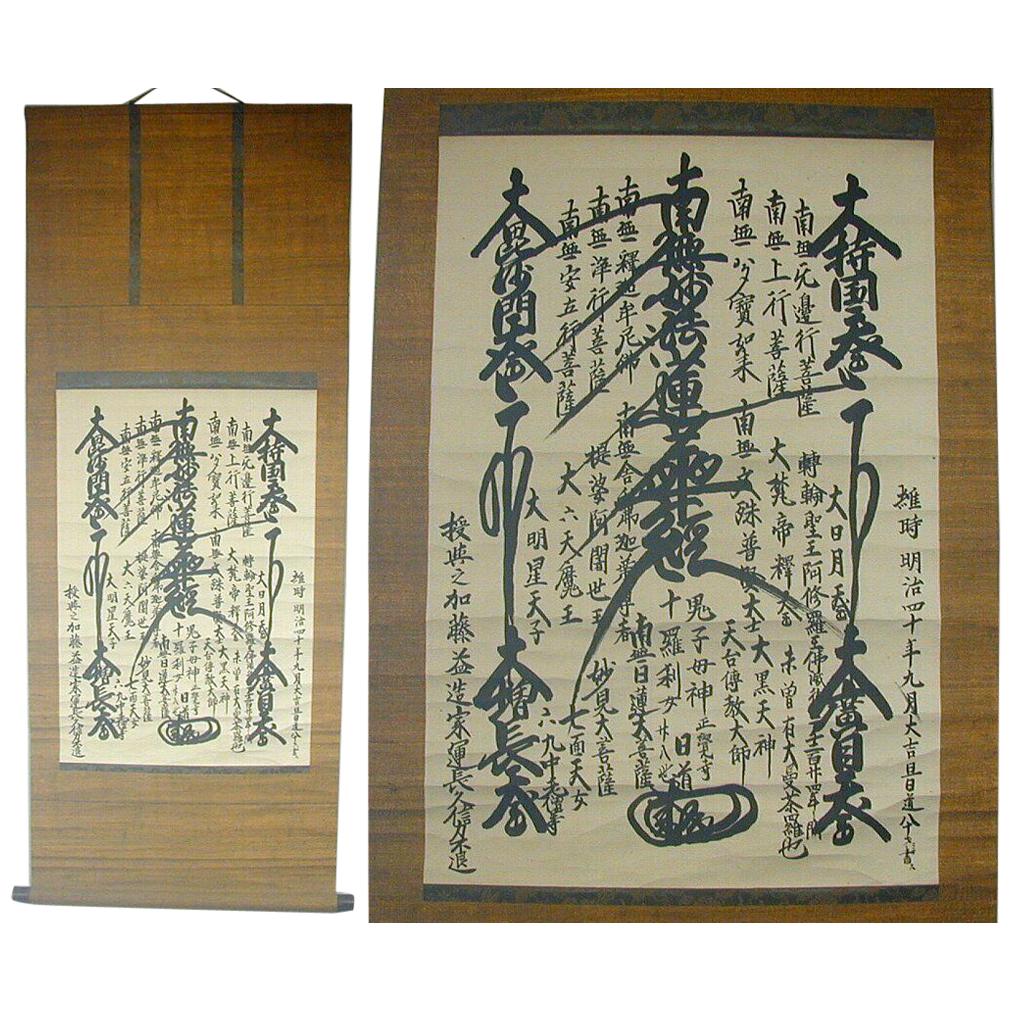 維時 明治四十年九月大吉旦日道
大持国天王
大廣目天王
大日月天王
轉輪聖王阿修羅王佛滅後
未曽有大曼荼羅也
南無无邊行菩薩
南無上行菩薩
大梵帝釋天王
大黒天神
南無多寶如来
南無文殊普賢大士
天台傳教大師
南無妙法蓮華經
鬼子母神
十羅刹女
正覺寺
廿八世
日道
南無釋迦牟尼佛
南無舎利弗迦葉尊者
南無日蓮大菩薩
南無浄行菩薩
提婆阿闍世王
妙見大菩薩
南無安立行菩薩
大六天魔王
七面天女
大明星天子
大毘沙門天王
大増長天王
授与之加藤益造家運長久信力不退